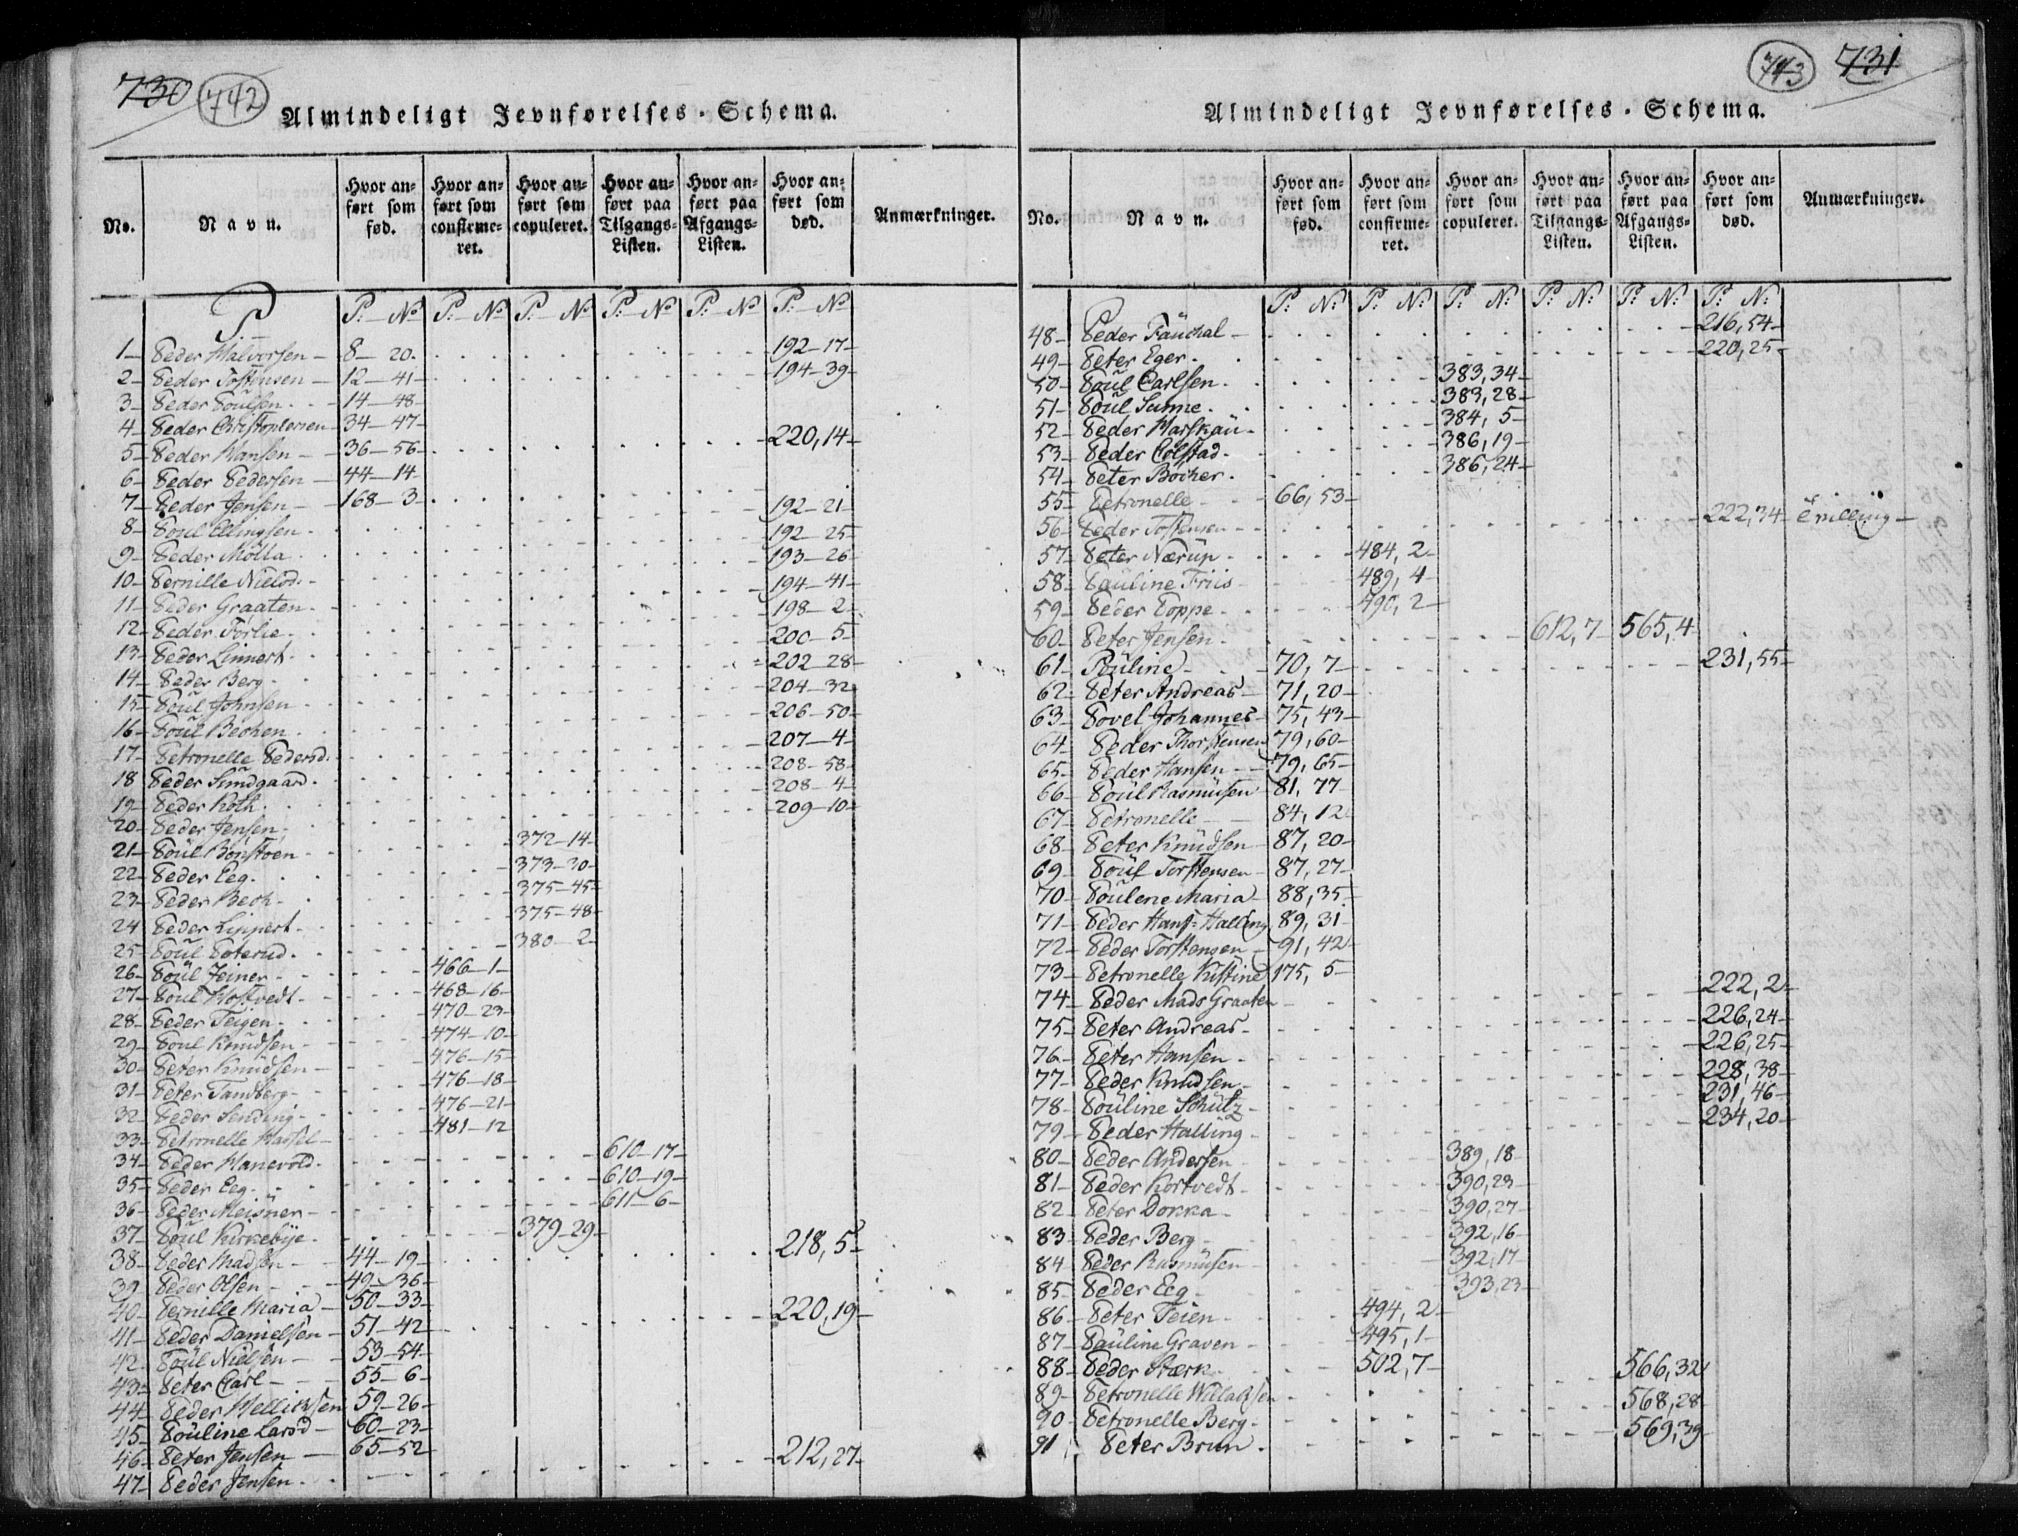 730 742
Almindeligt Jevnførelses-Schema.
No. Navn. Hvor anført som fød. Hvor anført som confirmeret. Hvor anført som copuleret. Hvor anført paa Tilgangs-Listen. Hvor anført paa Afgangs-Listen. Hvor anført som død. Anmærkninger.
P P. No P. No P. No P. No P. No P. No
1 Peder Halvorsen 8 20 192 17
2 Peder Tostensen 12 41 194 39
3 Peder Poulsen 14 48
4 Peder Christophersen 34 47
5 Peder Hansen 36 56 220,14
6 Peder Pedersen 44 14
7 Peder Jensen 168 3
8 Poul Ellingsen 192 21
9 Peder Mølla 192 25
10 Pernille Nielsd. 193 26
11 Peder Graaten 194 41
12 Peder Torlie 198 2
13 Peder Linnert 200 5
14 Peder Berg 202 28
15 Poul Johnsen 204 32
16 Poul Becken 206 50
17 Petronelle Pedersd. 207 4
18 Peder Sundgaard 208 58
19 Peder Roth 208 4
20 Peder Jensen 209 10
21 Poul Bonstoen 372 14
22 Peder Eeg 373 30
23 Peder Beck 375 45
24 Peder Lippert 375 48
25 Poul Poterud 380 2
26 Poul Feiner 466 1
27 Poul Kostvedt 468 16
28 Peder Teigen 470 23
29 Poul Knudsen 474 10
30 Peter Knudsen 476 15
31 Peter Tandberg 476 18
32 Peder Sending 476 21
33 Petronelle Hassel 481 12
34 Peder Hanevold 610 17
35 Peder Eeg 610 19
36 Peder Meisner 611 6
37 Poul Kirkebye 379 29
38 Peder Madsen 44 19 218,5
39 Peder Olsen 49 36
40 Pernille Maria 50 33
41 Peder Danielsen 51 42 220,19
42 Poul Nielsen 53 54
43 Peter Carl 55 6
44 Peder Mellichsen 59 26
45 Pouline Larsd 60 23
46 Peter Jensen 65 52
47 Peder Jensen 212,27
743 731
Almindeligt Jevnførelses-Schema.
No. Navn. Hvor anført som fød. Hvor anført som confirmeret. Hvor anført som copuleret. Hvor anført paa Tilgangs-Listen. Hvor anført paa Afgangs-Listen. Hvor anført som død. Anmærkninger.
P. N. P. N. P. N. P. N. P. N. P. N.
48 Peder Fauchal 216,54
49 Peter Eger 220,25
50 Poul Carlsen 383,34
51 Poul Sanne 383,28
52 Peder Harskau 384,5
53 Peder Colstad 386,19
54 Peter Bøcker 386,24
55 Petronelle 66,53
56 Peder Tostensen 222,34
57 Peter Nærup 484,2
58 Pauline Friis 489,4
59 Peder Poppe 490,2
60 Peter Jensen 612,7 565,4
61 Pauline 70,7 231,55
62 Peter Andreas 71,20
63 Povel Johannes 75,43
64 Peder Thorstensen 79,60
65 Peder Hansen 79,65
66 Poul Rasmusen 81,77
67 Petronelle 84,12
68 Peter Knudsen 87,20
69 Poul Torstensen 87,27
70 Poulene Maria 88,35
71 Peder Hans: Halling 89,31
72 Peder Torstensen 91,42
73 Petronelle Kistine 175,5
74 Peder Mads Graaten 222,2
75 Peter Andreas 226,24
76 Peter Hansen 226,25
77 Peder Knudsen 228,38
78 Pouline Schutz 231,46
79 Peder Halling 234,20
80 Peder Andersen 389,18
81 Peder Kortvedt 390,23
82 Peter Dokka 390,27
83 Peder Berg 392,16
84 Peder Rasmusen 392,17
85 Peder Eeg 393,23
86 Peter Teien 494,2
87 Pauline Graven 495,1
88 Peder Stærk 502,7 566,32
89 Petronelle 568,28
90 Petronelle Berg 569,39
91 Peter Brun